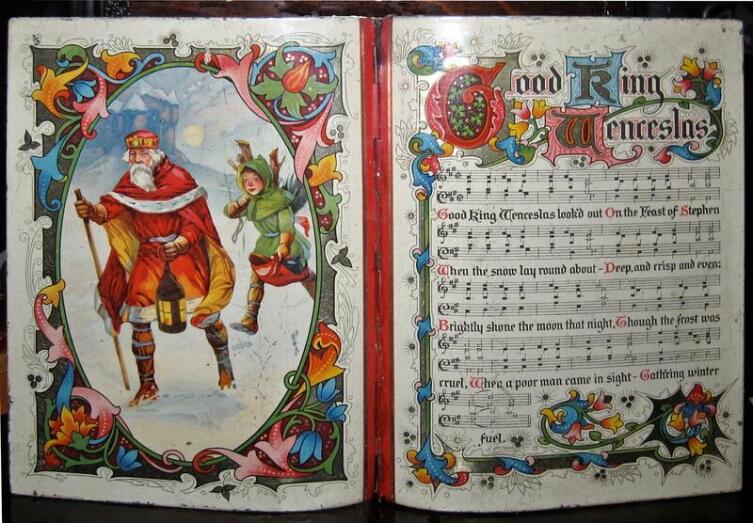 Good King
Wenceslas
Good King Wenceslas look'd out On the Feast of Stephen
When the snow lay round about - Deep, and crisp and even:
Brightly shone the moon that night, Though the frost was
cruel, When a poor man came in sight - Gath'ring winter
fuel.